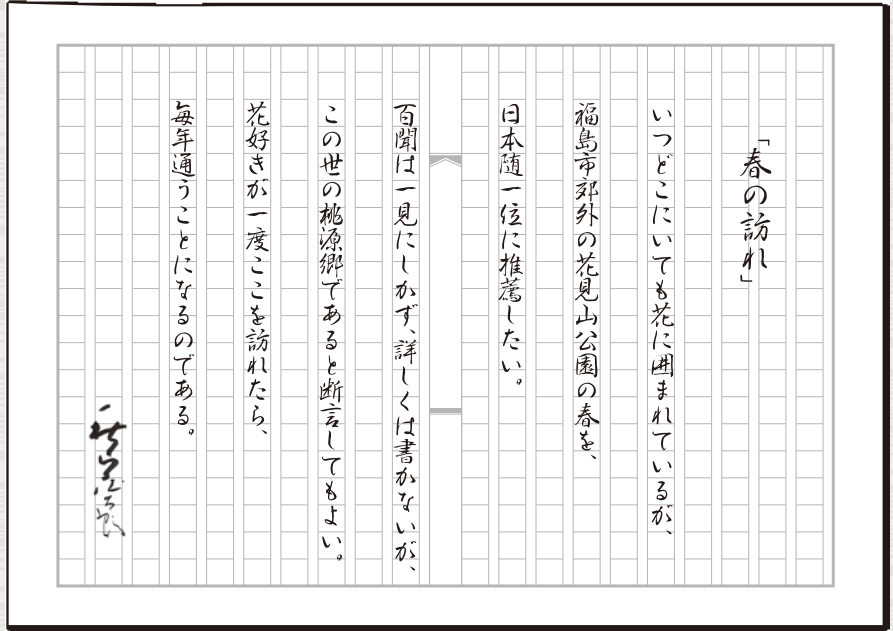 「春の訪れ」
いつどこにいても花に囲まれているが、
福島市郊外の花見山公園の春を、
日本随一位に推薦したい。
百聞は一見にしかず、詳しくは書かないが、
この世の桃源郷であると断言してもよい。
花好きが一度ここを訪れたら、
毎年通うことになるのである。